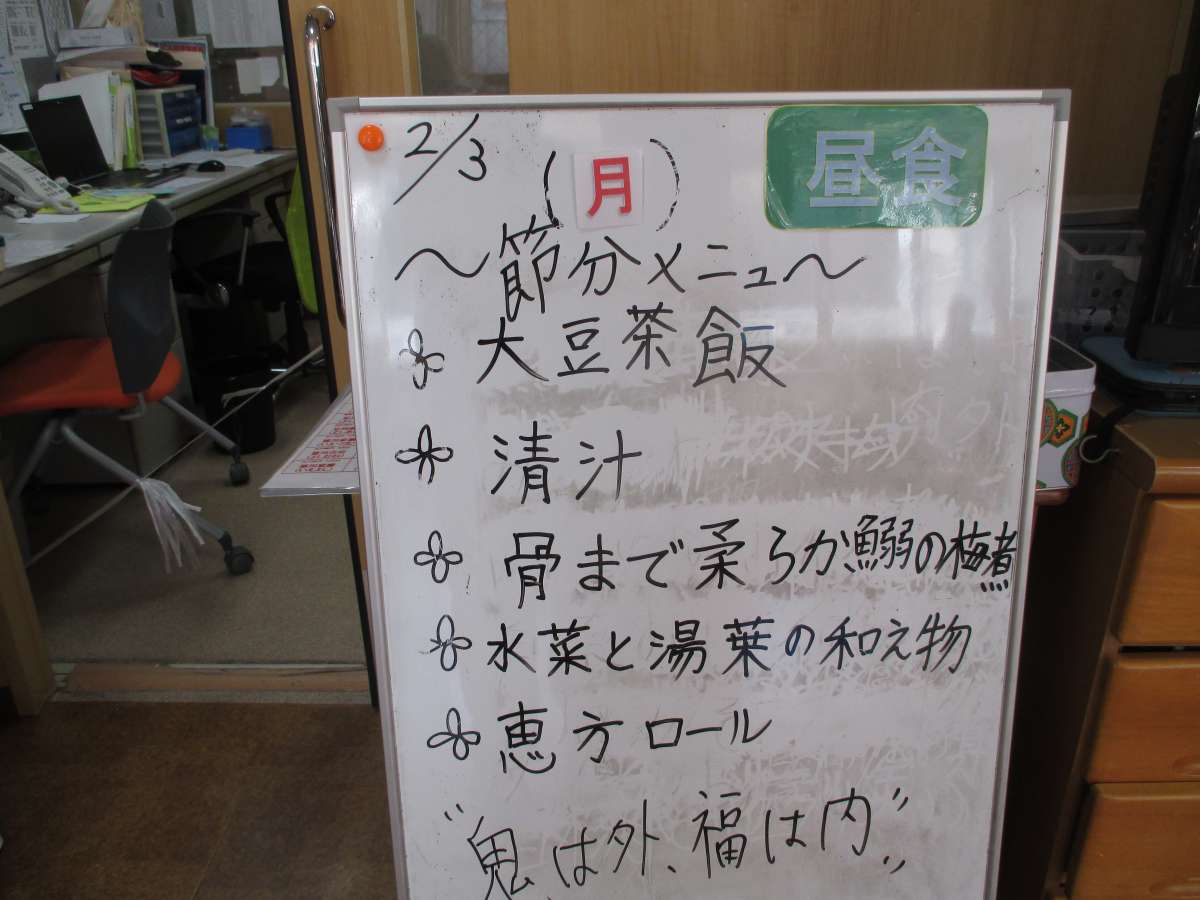 2/3 (月) 昼食
〜節分メニュー〜
大豆茶飯
清汁
骨まで柔らか鰯の梅煮
水菜と湯葉の和え物
恵方ロール
"鬼は外、福は内"